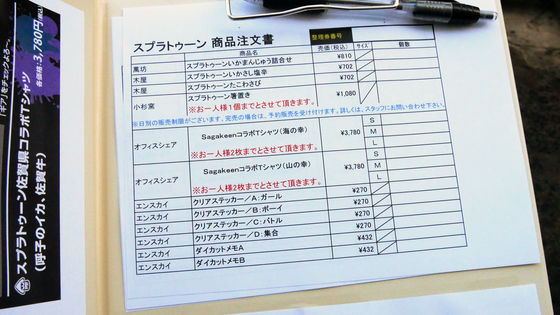 スプラトゥーン 商品注文書
整理券番号
商品名 売価(税込) サイズ 個数
萬坊 スプラトゥーンいかまんじゅう詰合せ ¥810
木屋 スプラトゥーンいかさし塩辛 ¥702
木屋 スプラトゥーンたこわさび ¥702
小杉窯 スプラトゥーン箸置き ¥1,080
※お一人様1個までとさせて頂きます。
※日別の販売制限がございます。完売の場合は、予約販売を受け付けます。詳しくは、スタッフにお問い合わせ下さい。
オフィスシェア SagakeenコラボTシャツ(海の幸) ¥3,780 S
※お一人様2枚までとさせて頂きます。 M
L
オフィスシェア SagakeenコラボTシャツ(山の幸) ¥3,780 S
※お一人様2枚までとさせて頂きます。 M
L
エンスカイ クリアステッカー/A:ガール ¥270
エンスカイ クリアステッカー/B:ボーイ ¥270
エンスカイ クリアステッカー/C:バトル ¥270
エンスカイ クリアステッカー/D:集合 ¥270
エンスカイ ダイカットメモA ¥432
エンスカイ ダイカットメモB ¥432
「ギア」をチェックよろ~。
各価格:3,780円(税込)
スプラトゥーン佐賀県コラボTシャツ
(呼子のイカ、佐賀牛)